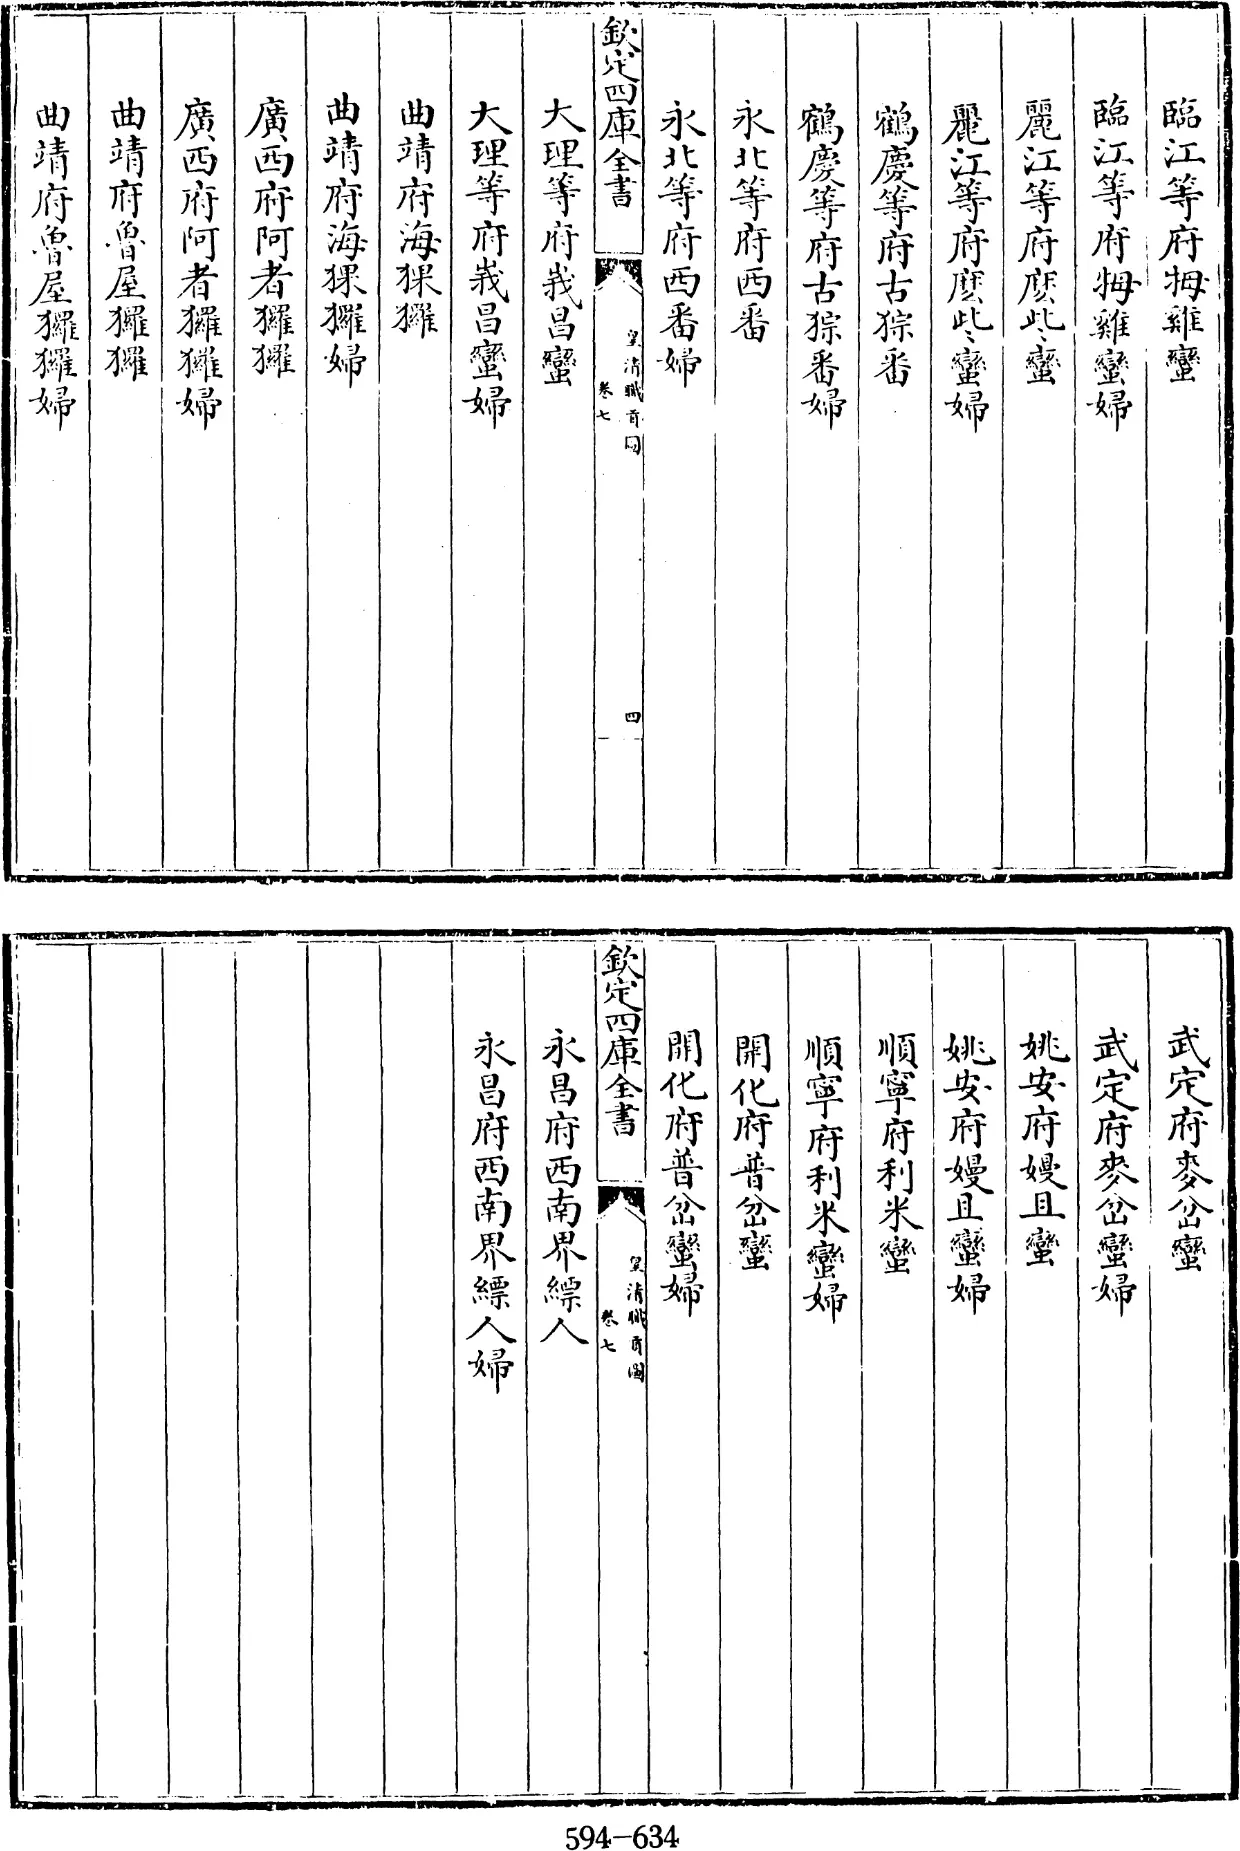 臨江等府㹇雞蠻
臨江等府㹇雞蠻婦
麗江等府麽些蠻
麗江等府麽些蠻婦
鶴慶等府古猔番
鶴慶等府古猔番婦
永北等府西番
永北等府西番婦
欽定四庫全書
皇清職貢圖
卷七
四
大理等府峩昌蠻
大理等府峩昌蠻婦
曲靖府海猓玀
曲靖府海猓玀婦
廣西府阿者玀玀
廣西府阿者玀玀婦
曲靖府魯屋玀玀
曲靖府魯屋玀玀婦
武定府麥岔蠻
武定府麥岔蠻婦
姚安府嫚且蠻
姚安府嫚且蠻婦
順寧府利米蠻
順寧府利米蠻婦
開化府普岔蠻
開化府普岔蠻婦
欽定四庫全書
皇清職貢圖
卷七
永昌府西南界縹人
永昌府西南界縹人婦
594-634